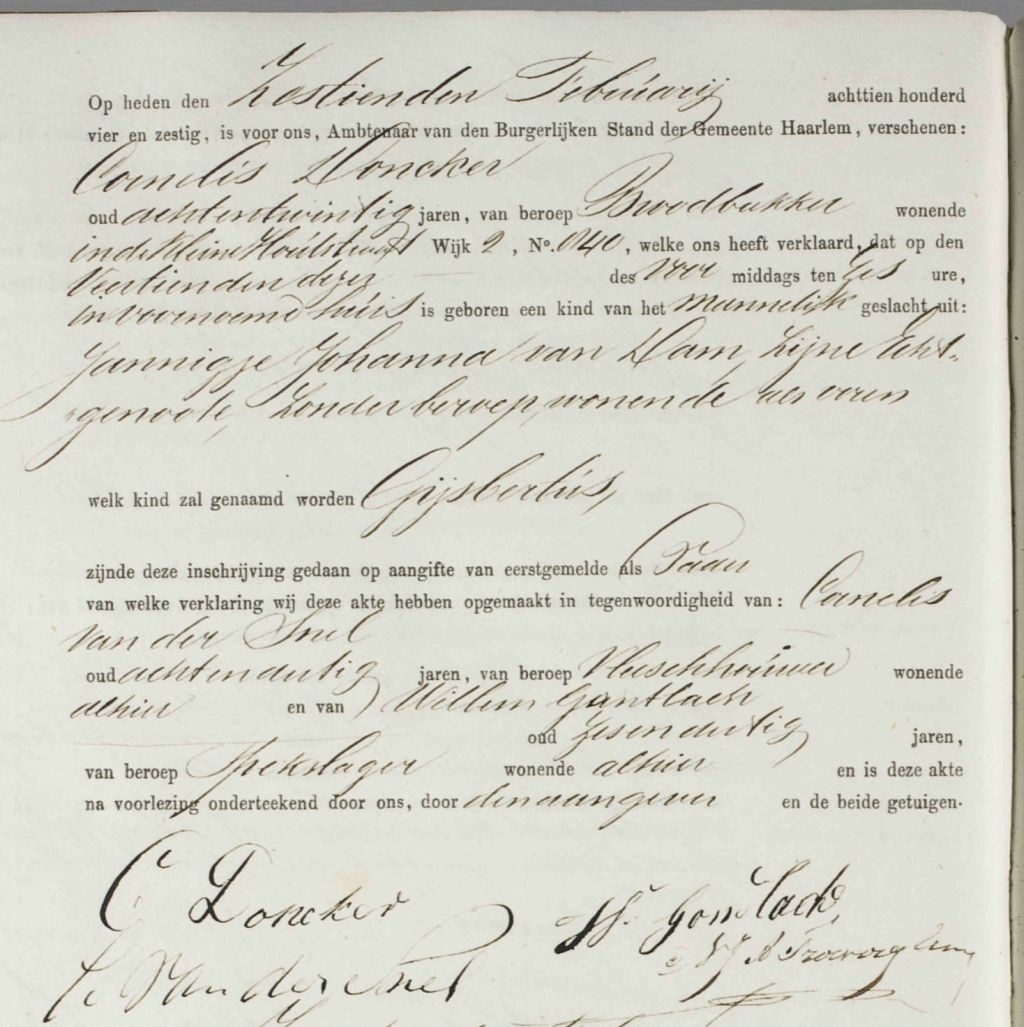 Op heden den Zestienden Februarij achttien honderd
vier en zestig, is voor ons, Ambtenaar van den Burgerlijken Stand der Gemeente Haarlem, verschenen:
Cornelis Doncker
oud achtentwintig jaren, van beroep Broodbakker wonende
in de Kleine Houtstraat Wijk 2, No. 840, welke ons heeft verklaard, dat op den
Veertienden dezer des voor middags ten Zes ure,
in voornoemd huis is geboren een kind van het mannelijk geslacht uit:
Jannigje Johanna van Dam, Zijne Echt-
genoote, Zonder beroep, wonende als voren
welk kind zal genaamd worden Gijsbertus,
zijnde deze inschrijving gedaan op aangifte van eerstgemelde als Vader
van welke verklaring wij deze akte hebben opgemaakt in tegenwoordigheid van: Cornelis
van der Snel
oud achtendertig jaren, van beroep Vleeschhouwer wonende
alhier en van Willem Gantlach
oud Zesendertig jaren,
van beroep Spekslager wonende alhier en is deze akte
na voorlezing onderteekend door ons, door den aangever en de beide getuigen.
C Doncker
W. Gontlach
C. van der Snel